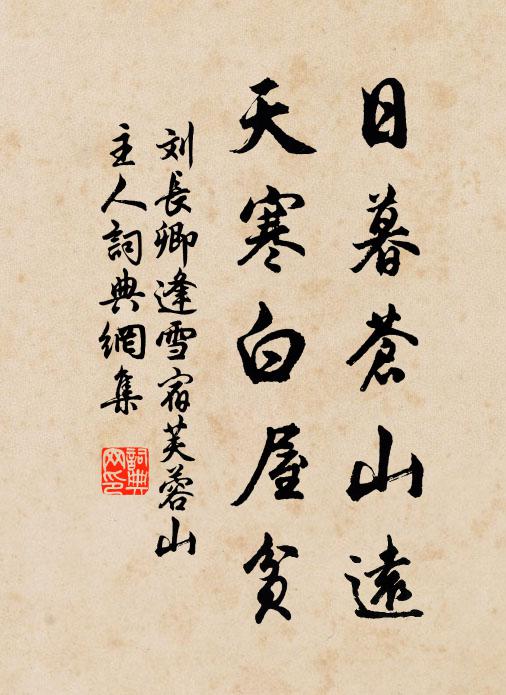 日暮蒼山遠
天寒白屋貧
刘長卿逢雪宿芙蓉山
主人詞典網集
詞典
网印